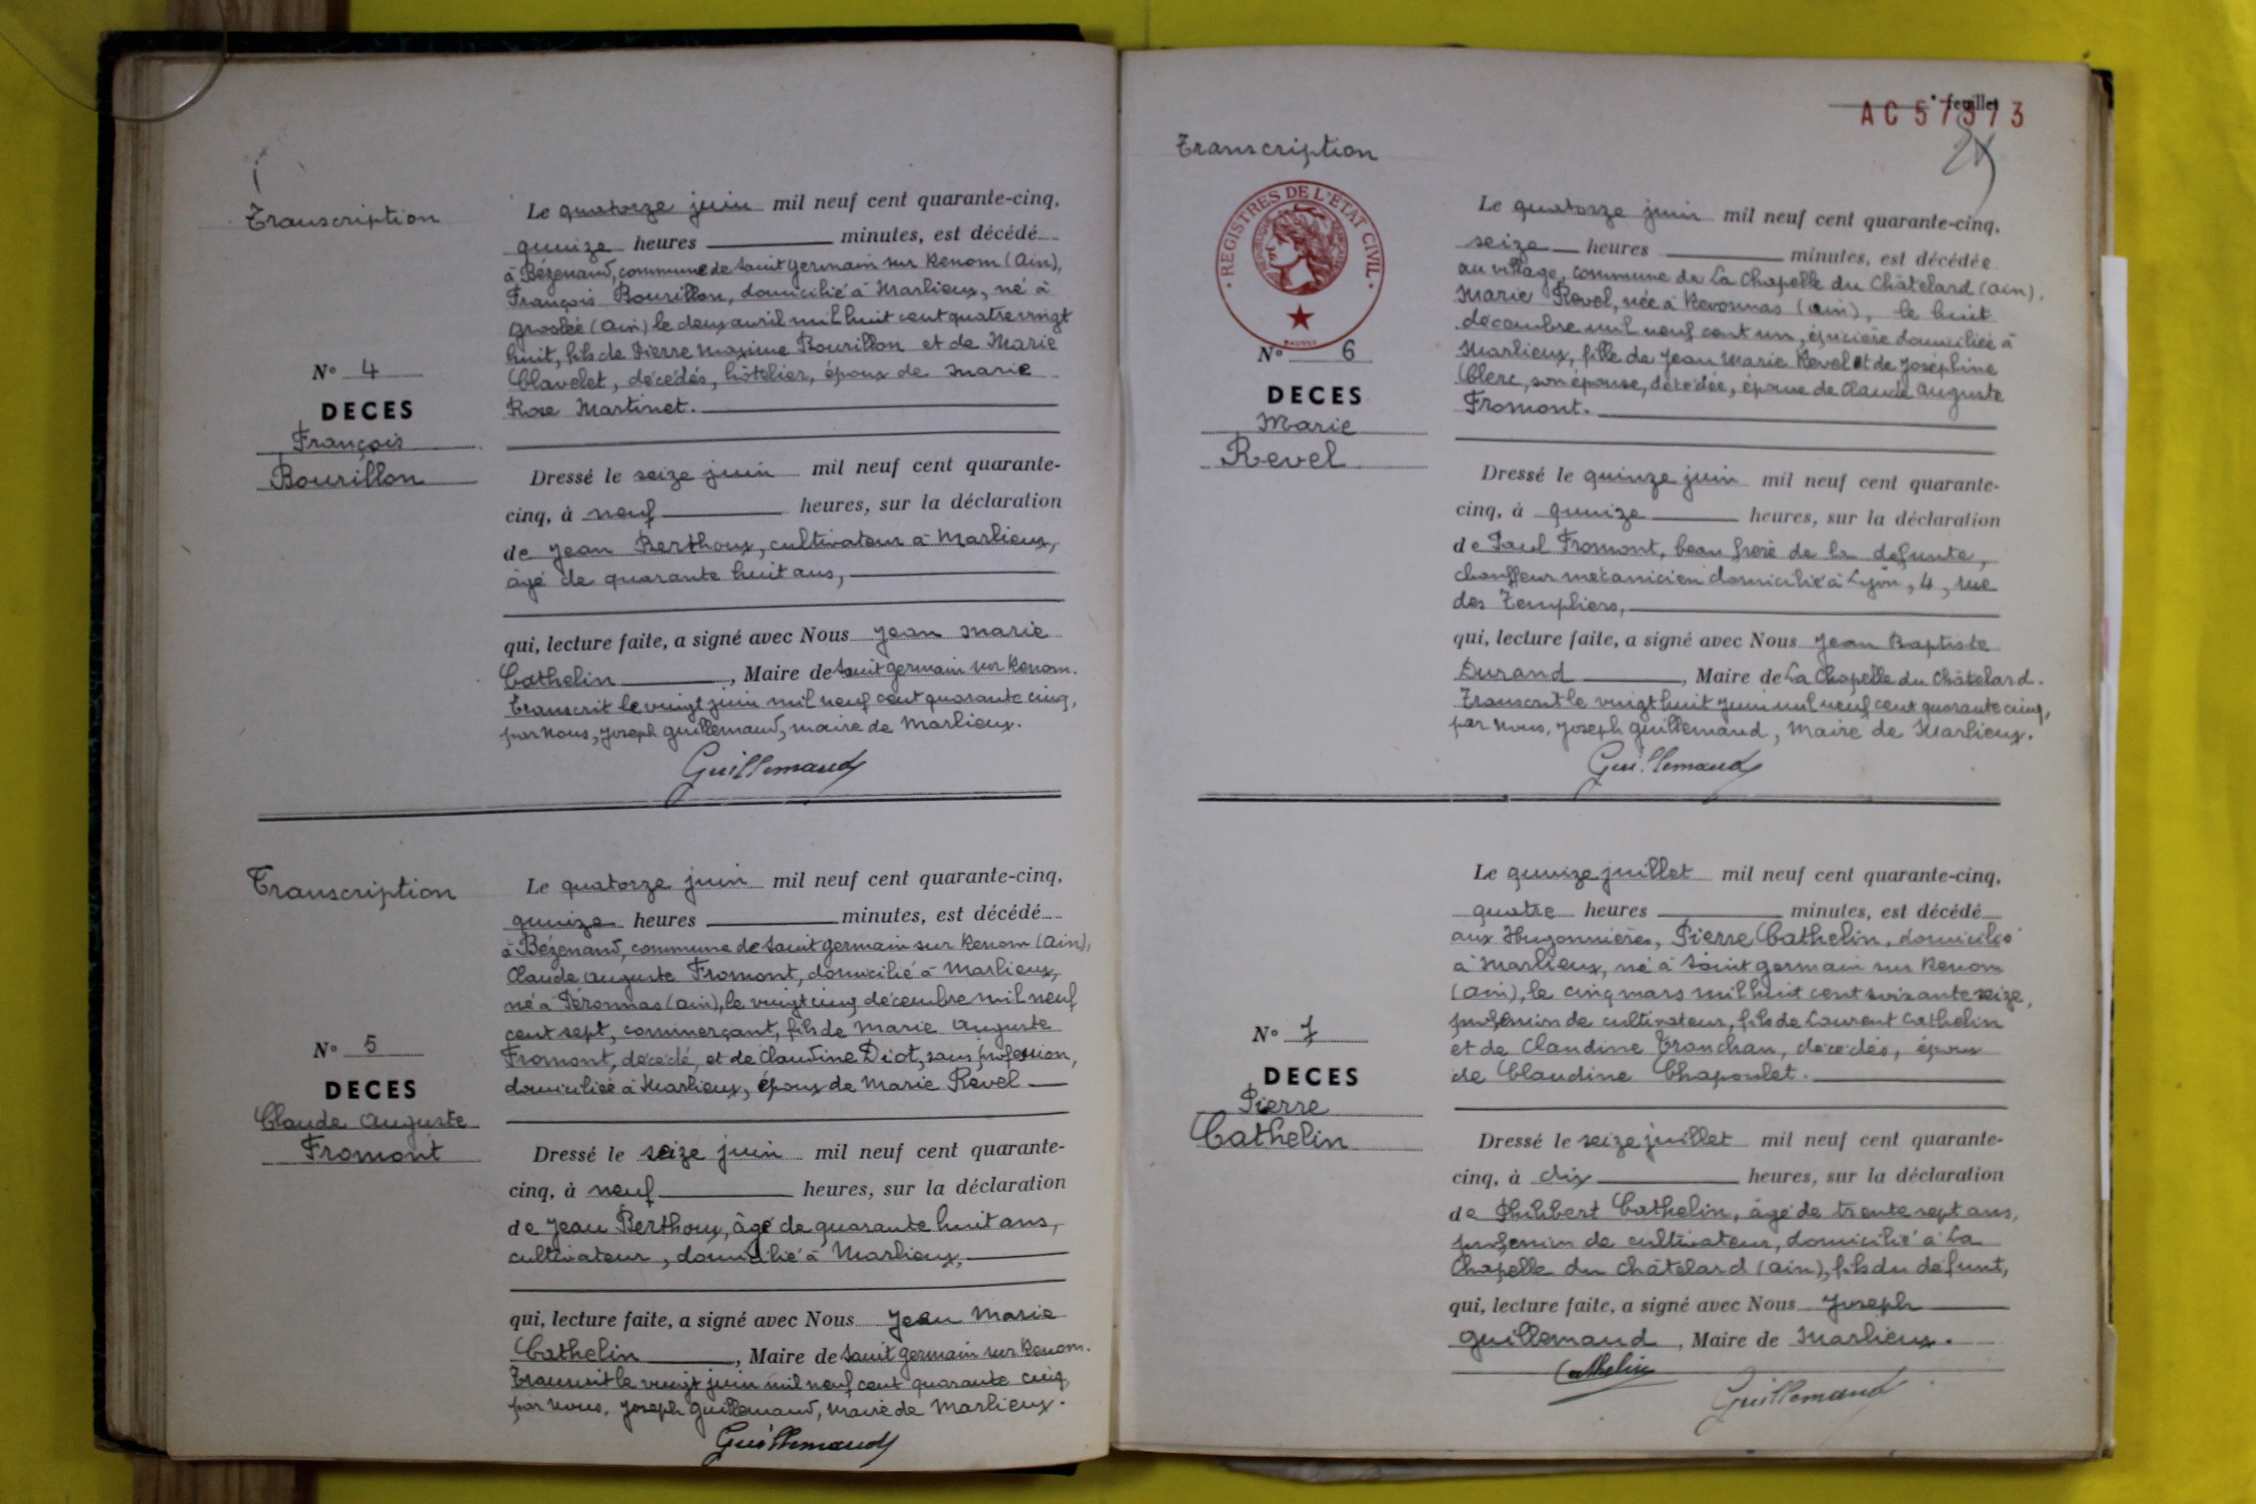 Transcription
N° 4
DECES
François
Bourillon
Le quatorze juin mil neuf cent quarante-cinq,
quinze heures minutes, est décédé
à Bézenand, commune de Saint Germain sur Renom (Ain),
François Bourillon, domicilié à Marlieux, né à
Groslée (Ain) le deux avril mil huit cent quatre vingt
huit, fils de Pierre Maxime Bourillon et de Marie
Clavelet, décédés, hôtelier, époux de Marie
Rose Martinet.
Dressé le seize juin mil neuf cent quarante-
cinq, à neuf heures, sur la déclaration
de Jean Berthoux, cultivateur à Marlieux,
âgé de quarante huit ans,
qui, lecture faite, a signé avec Nous Jean Marie
Cathelin, Maire de Saint Germain sur Renom.
Transcrit le vingt juin mil neuf cent quarante cinq,
par Nous, Joseph Guillemaud, maire de Marlieux.
Guillemaud
Transcription
N° 5
DECES
Claude Auguste
Fromont
Le quatorze juin mil neuf cent quarante-cinq,
quinze heures minutes, est décédé
à Bézenand, commune de Saint Germain sur Renom (Ain),
Claude Auguste Fromont, domicilié à Marlieux,
né à Péronnas (Ain), le vingt cinq décembre mil neuf
cent sept, commerçant, fils de Marie Auguste
Fromont, décédé, et de Claudine Diot, sans profession,
domiciliée à Marlieux, époux de Marie Revel
Dressé le seize juin mil neuf cent quarante-
cinq, à neuf heures, sur la déclaration
de Jean Berthoux, âgé de quarante huit ans,
cultivateur, domicilié à Marlieux,
qui, lecture faite, a signé avec Nous Jean Marie
Cathelin, Maire de Saint Germain sur Renom.
Transcrit le vingt juin mil neuf cent quarante cinq,
par Nous, Joseph Guillemaud, Maire de Marlieux.
Guillemaud
° feuillet
AC57373
Transcription
REGISTRES DE L'ETAT CIVIL
N° 6
DECES
Marie
Revel
Le quatorze juin mil neuf cent quarante-cinq,
seize heures minutes, est décédée
au village, commune de La Chapelle du Châtelard (Ain),
Marie Revel, née à Revonnas (Ain), le huit
décembre mil neuf cent un, épicière domiciliée à
Marlieux, fille de Jean Marie Revel et de Joséphine
Clerc, son épouse, décédée, épouse de Claude Auguste
Fromont.
Dressé le quinze juin mil neuf cent quarante-
cinq, à quinze heures, sur la déclaration
de Paul Fromont, beau frère de la défunte,
chauffeur mécanicien domicilié à Lyon, 4, rue
des Templiers,
qui, lecture faite, a signé avec Nous Jean Baptiste
Durand, Maire de La Chapelle du Châtelard.
Transcrit le vingt huit juin mil neuf cent quarante cinq,
par Nous, Joseph Guillemaud, Maire de Marlieux.
Guillemaud
N° 7
DECES
Pierre
Cathelin
Le quinze juillet mil neuf cent quarante-cinq,
quatre heures minutes, est décédé
aux Hugonnières, Pierre Cathelin, domicilié
à Marlieux, né à Saint Germain sur Renom
(Ain), le cinq mars mil huit cent soixante seize,
profession de cultivateur, fils de Laurent Cathelin
et de Claudine Tranchan, décédés, époux
de Claudine Chapoulet.
Dressé le seize juillet mil neuf cent quarante-
cinq, à dix heures, sur la déclaration
de Philibert Cathelin, âgé de trente sept ans,
profession de cultivateur, domicilié à La
Chapelle du Châtelard (Ain), fils du défunt,
qui, lecture faite, a signé avec Nous Joseph
Guillemaud, Maire de Marlieux.
Cathelin
Guillemaud